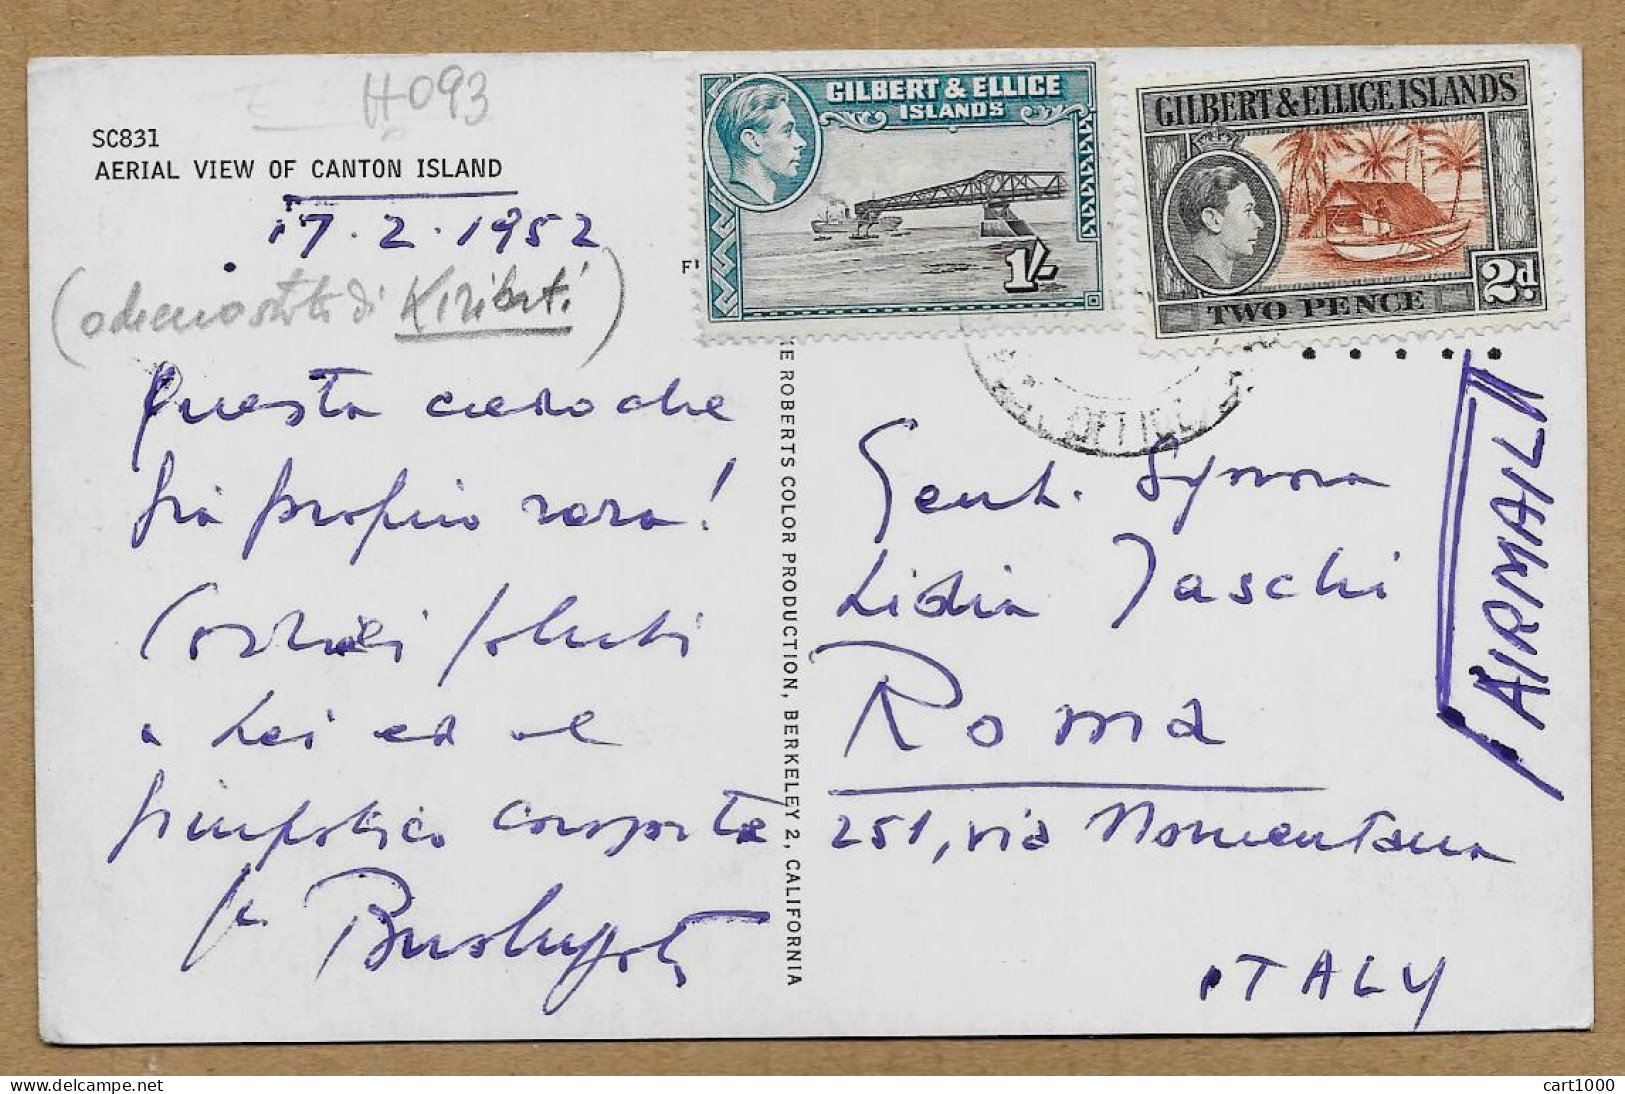 H093
SC831
AERIAL VIEW OF CANTON ISLAND
17.2.1952
( di Kiribati )
Questa credo che
sia proprio rara!
Cordiali saluti
a Lei ed al
simpatico consorte
GILBERT & ELLICE
ISLANDS
1/-
GILBERT & ELLICE ISLANDS
2d.
TWO PENCE
OFFICE
ROBERTS COLOR PRODUCTION, BERKELEY 2, CALIFORNIA
AIRMAIL
Gent. Signora
Lidia Taschi
Roma
251, via Nomentana
ITALY
cart1000